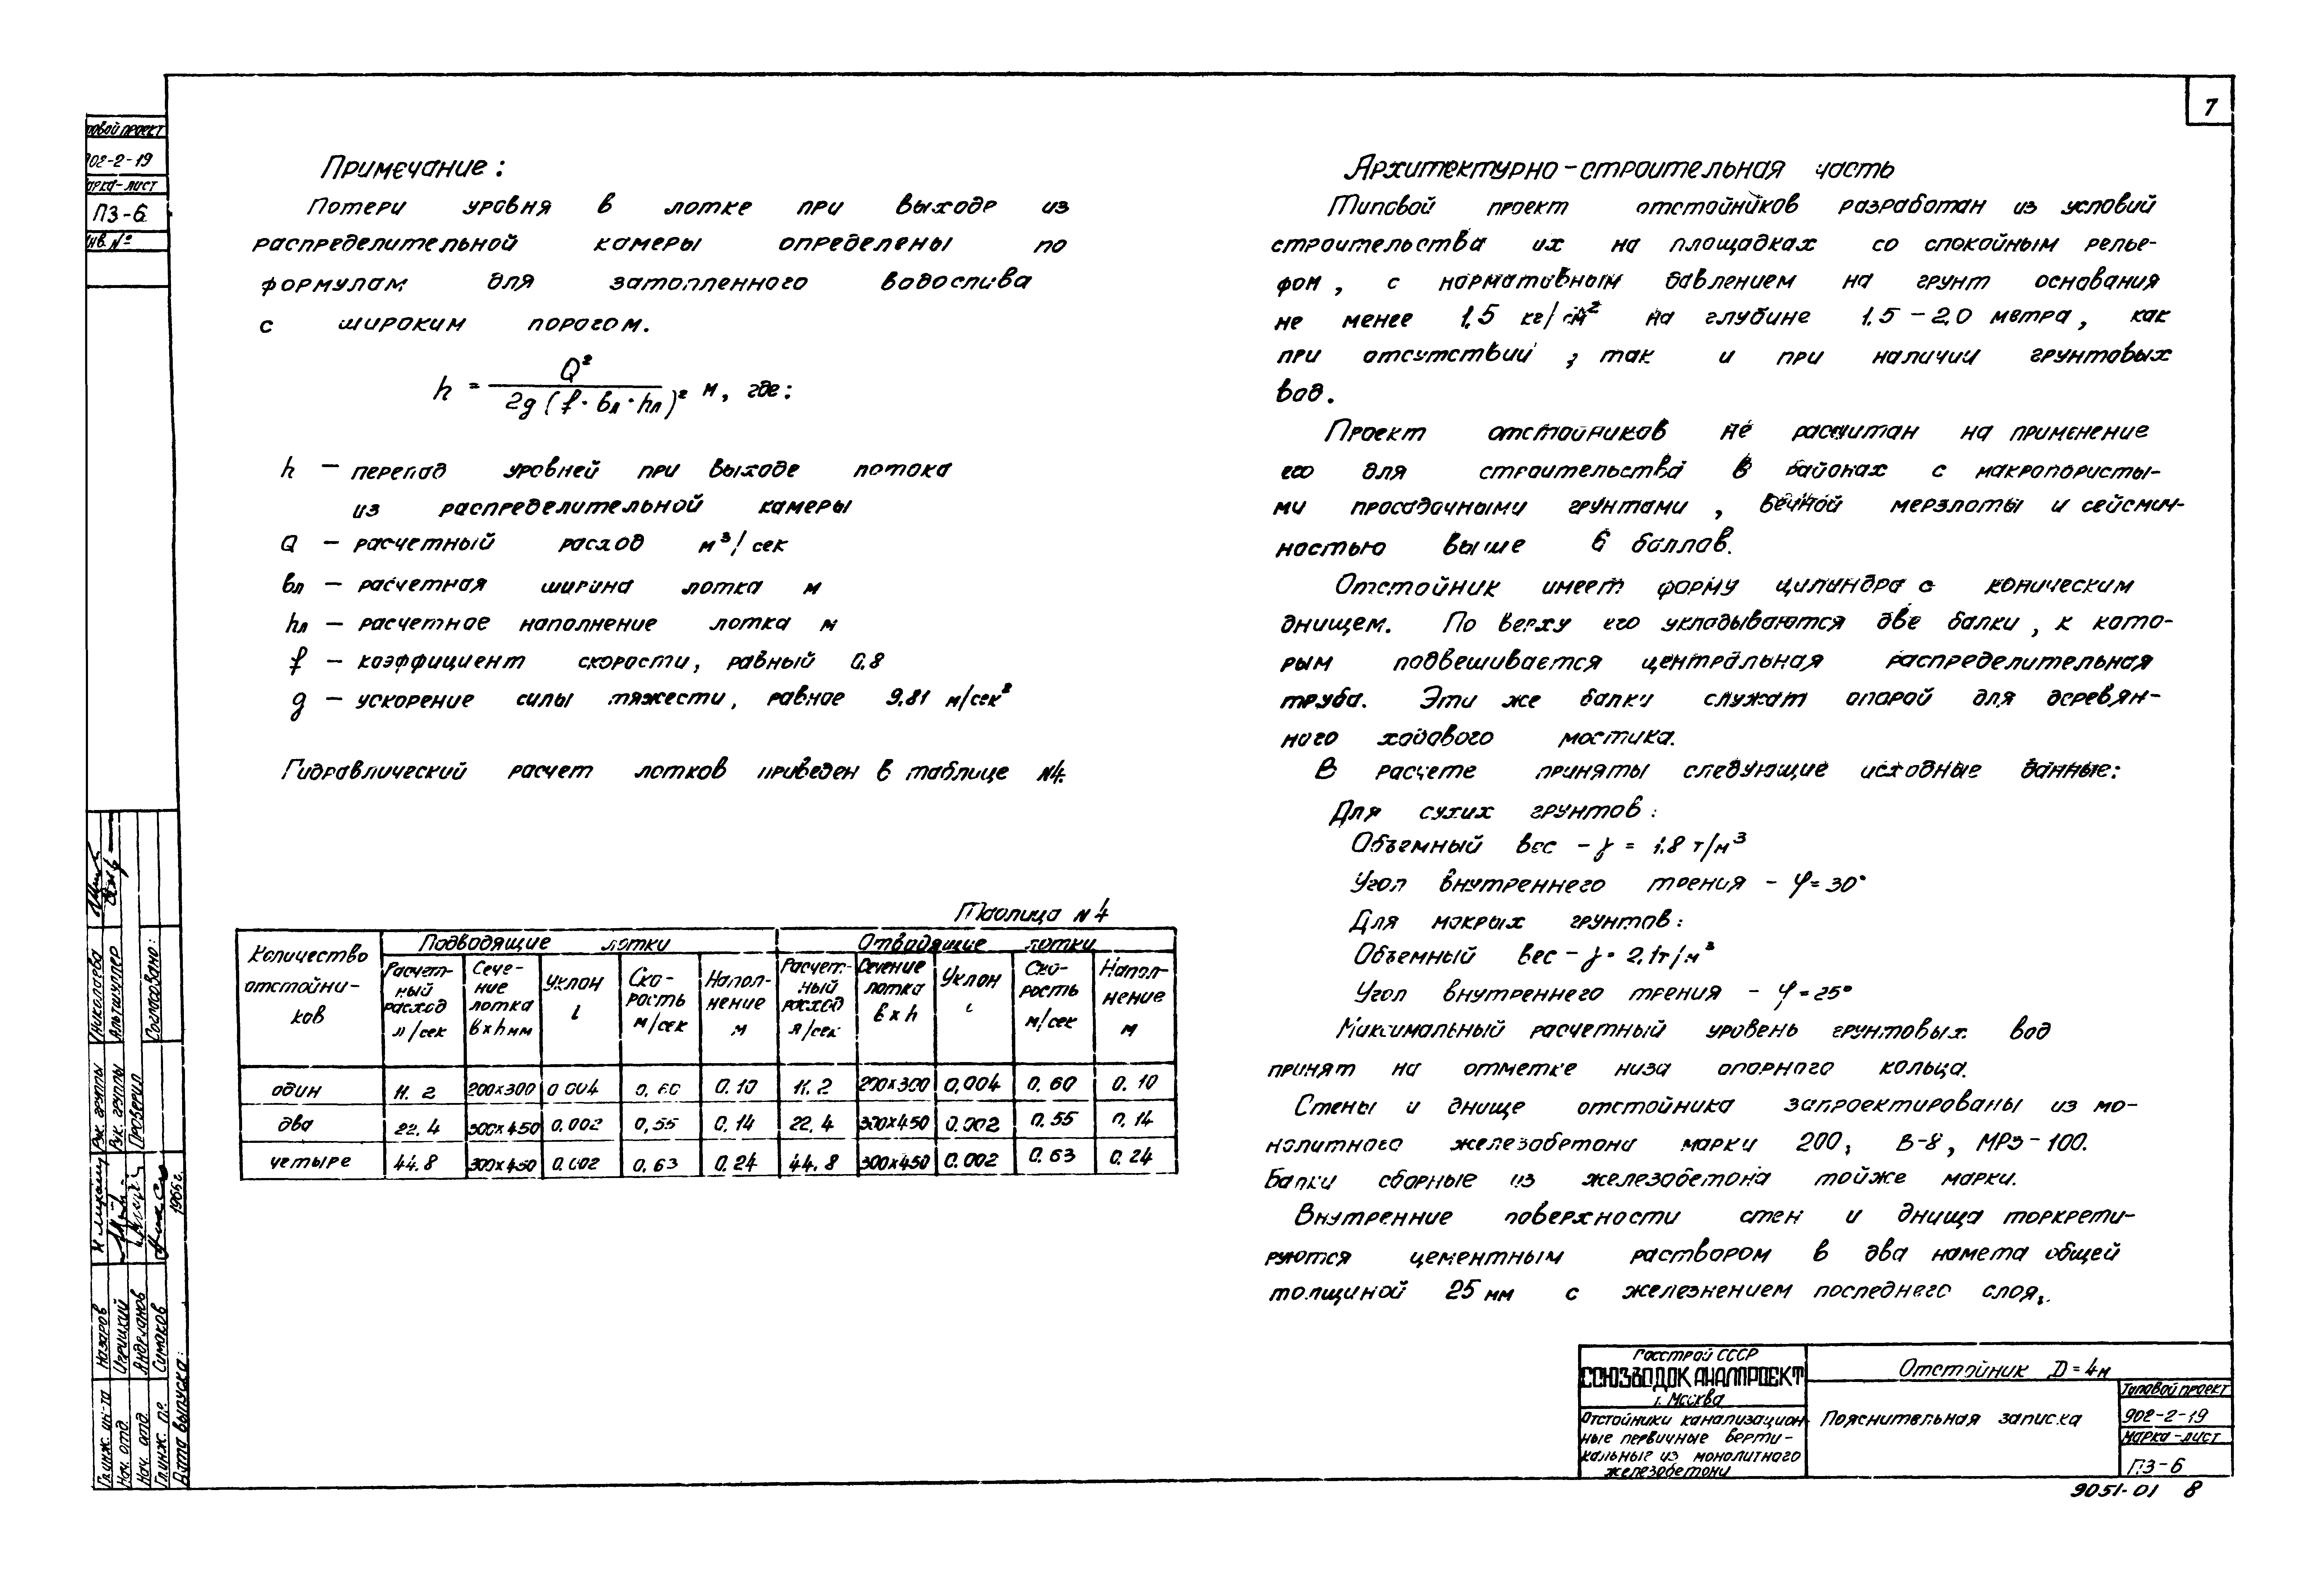 7
Примечание:
Потери уровня в лотке при выходе из
распределительной камеры определены по
формулам для затопленного водослива
с широким порогом.
h = Q² / 2g (f · bл · hл)² м, где:
h — перепад уровней при выходе потока
из распределительной камеры
Q — расчетный расход м³/сек
bл — расчетная ширина лотка м
hл — расчетное наполнение лотка м
f — коэффициент скорости, равный 0.8
g — ускорение силы тяжести, равное 9.81 м/сек²
Гидравлический расчет лотков приведен в таблице №4.
Таблица №4
Количество отстойни-ков | Подводящие лотки | Отводящие лотки
Расчет-ный расход л/сек | Сече-ние лотка b x h мм | Уклон i | Ско-рость м/сек | Напол-нение м | Расчет-ный расход л/сек | Сечение лотка b x h | Уклон i | Ско-рость м/сек | Напол-нение м
один | 11.2 | 200x300 | 0.004 | 0,60 | 0.10 | 11.2 | 200x300 | 0,004 | 0.60 | 0.10
два | 22.4 | 300x450 | 0.002 | 0,55 | 0.14 | 22.4 | 300x450 | 0.002 | 0.55 | 0,14
четыре | 44.8 | 300x450 | 0.002 | 0.63 | 0.24 | 44.8 | 300x450 | 0.002 | 0.63 | 0.24
Архитектурно-строительная часть
Типовой проект отстойников разработан из условий
строительства их на площадках со спокойным релье-
фом, с нормативным давлением на грунт основания
не менее 1,5 кг/см² на глубине 1.5 – 2,0 метра, как
при отсутствии, так и при наличии грунтовых
вод.
Проект отстойников не расчитан на применение
его для строительства в районах с макропористы-
ми просадочными грунтами, вечной мерзлоты и сейсмич-
ностью выше 6 баллов.
Отстойник имеет форму цилиндра с коническим
днищем. По верху его укладываются две балки, к кото-
рым подвешивается центральная распределительная
труба. Эти же балки служат опорой для деревян-
ного ходового мостика.
В расчете приняты следующие исходные данные:
Для сухих грунтов:
Объемный вес – γ = 1.8 т/м³
Угол внутреннего трения – φ = 30°
Для мокрых грунтов:
Объемный вес – γ = 2,1т/м³
Угол внутреннего трения – φ = 25°
Максимальный расчетный уровень грунтовых вод
принят на отметке низа опорного кольца.
Стены и днище отстойника запроектированы из мо-
нолитного железобетона марки 200, В-8, МРЗ-100.
Балки сборные из железобетона тойже марки.
Внутренние поверхности стен и днища торкрети-
руются цементным раствором в два намета общей
толщиной 25 мм с железнением последнего слоя.
Госстрой СССР
СОЮЗВОДОКАНАЛПРОЕКТ
г. Москва
Отстойники канализацион-
ные первичные верти-
кальные из монолитного
железобетона
Отстойник D = 4м
Пояснительная записка
Типовой проект
902-2-19
Марка-лист
ПЗ-6
9051-01 8
повой проект
902-2-19
арка-лист
ПЗ-6
Инв. №
Николаева
Альтшуллер
Согласовано:
Рук. группы
Рук. группы
Проверил
1966г.
Гл. инж. ин-та Назаров
Нач. отд.
Нач. отд. Андрианов
Гл. инж. пр. Симаков
Дата выпуска: